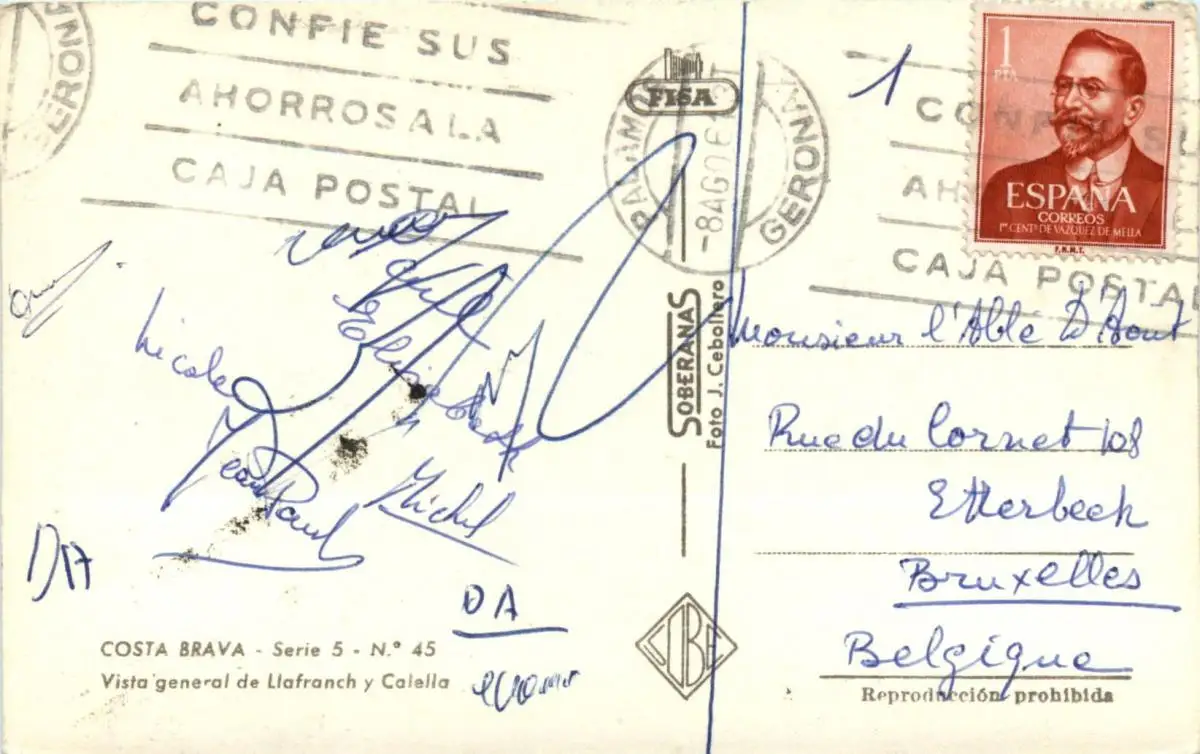 GERONA
CONFIE SUS
AHORROS A LA
CAJA POSTAL
FISA
PALAMOS
-8 AGO
GERONA
1
CONFIE SUS
AH
CAJA POSTA
1
PTA
ESPAÑA
CORREOS
1er CENTo DE VAZQUEZ DE MELLA
F.N.M.T.
Nicole
Elisabeth
Jean Paul
Michel
DA
SOBERANAS
Foto J. Cebollero
Monsieur l'Abbé D'Aout
Rue du Cornet 108
Etterbeek
Bruxelles
Belgique
COSTA BRAVA - Serie 5 - N.° 45
Vista general de Llafranch y Calella
Reproducción prohibida